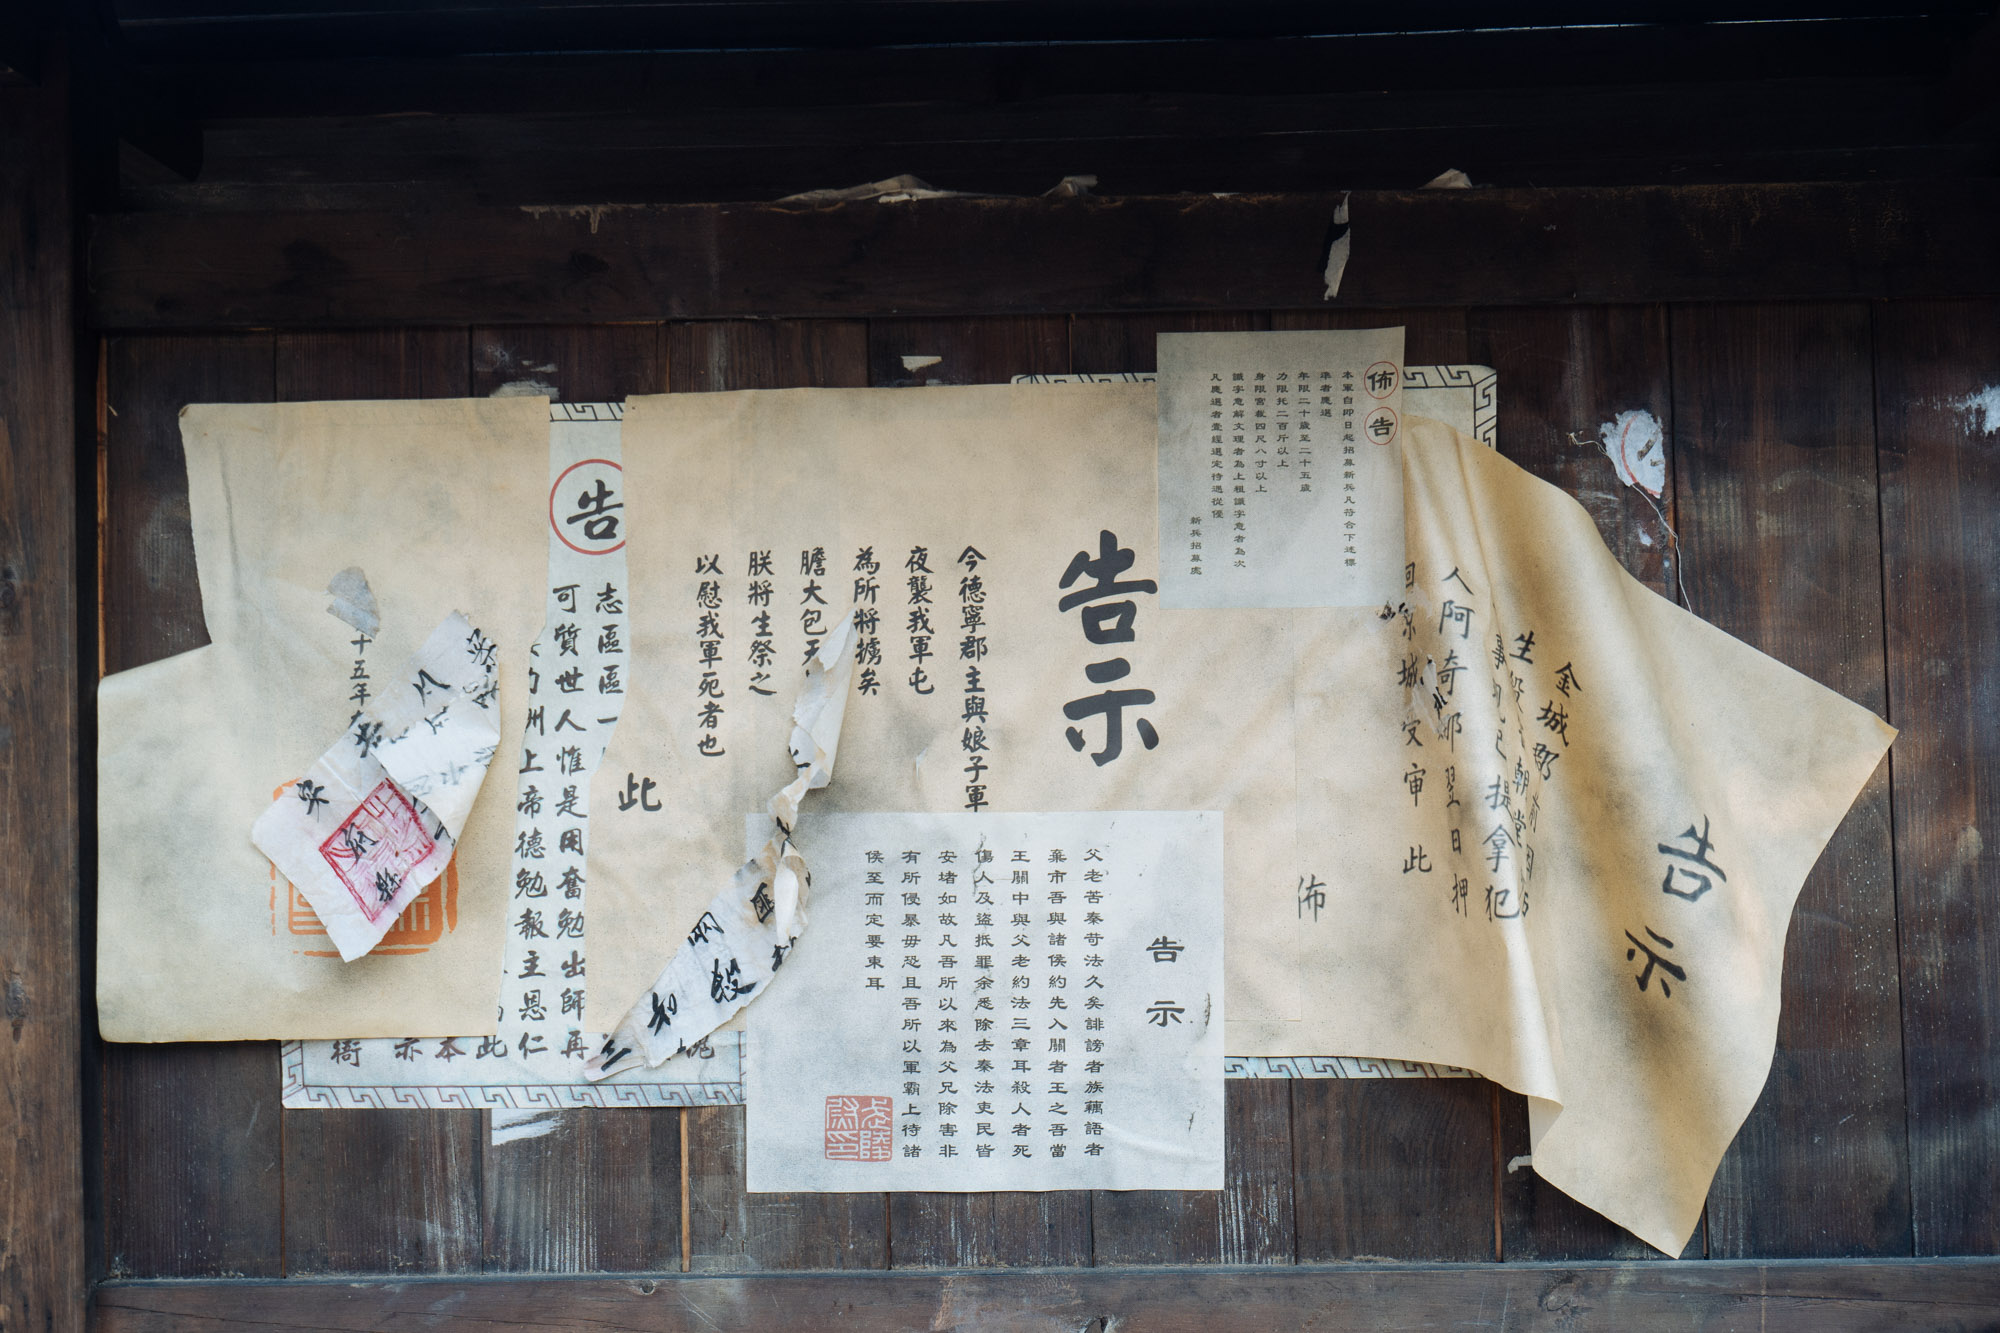 佈告
本軍自即日起招募新兵凡符合下述標
準者應選
年限二十歲至二十五歲
力限托二百斤以上
身限宮裁四尺八寸以上
識字意解文理者為上粗識字意者為次
凡應選者壹經選定待遇從優
新兵招募處
告示
金城郡
生
朝堂
提拿犯
人阿奇那翌日押
城受审此
佈
告示
今德寧郡主與娘子軍
夜襲我軍屯
為所將擄矣
膽大包天
朕將生祭之
以慰我軍死者也
此
告示
父老苦秦苛法久矣誹謗者族藕語者
棄市吾與諸侯約先入關者王之吾當
王關中與父老約法三章耳殺人者死
傷人及盜抵罪余悉除去秦法吏民皆
安堵如故凡吾所以來為父兄除害非
有所侵暴毋恐且吾所以軍霸上待諸
侯至而定要束耳
告
志區區一
可質世人惟是用奮勉出師再
州上帝德勉報主恩仁
此
本
示
衙
十五年
匪
殺